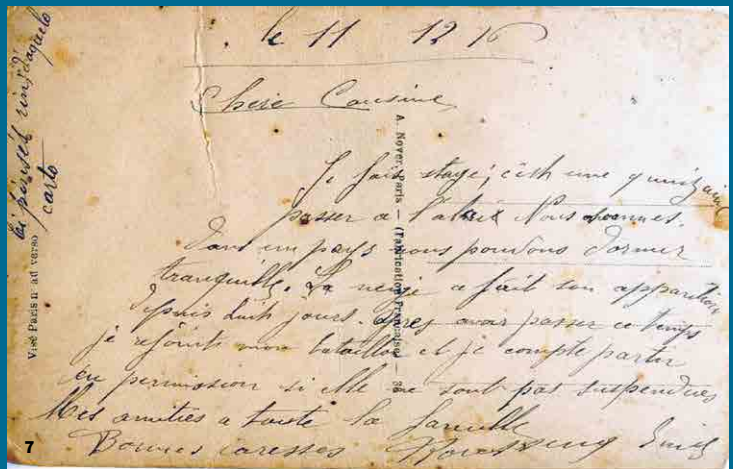 le 11 12 16
Chère Cousine
Je fais stage; c'est une quinzaine
passer a l'abri Nous sommes.
dans un pays nous pouvons dormir
tranquille. La neige a fait son apparition
depuis huit jours. Apres avoir passer ce temps
je rejoints mon bataillon et je compte partir
en permission si elle ne sont pas suspendues
Mes amities a toute la famille
Bonnes caresses
carto
Visé Paris n° ad verso
A. Noyer, Paris — (Fabrication Française) — 38
7